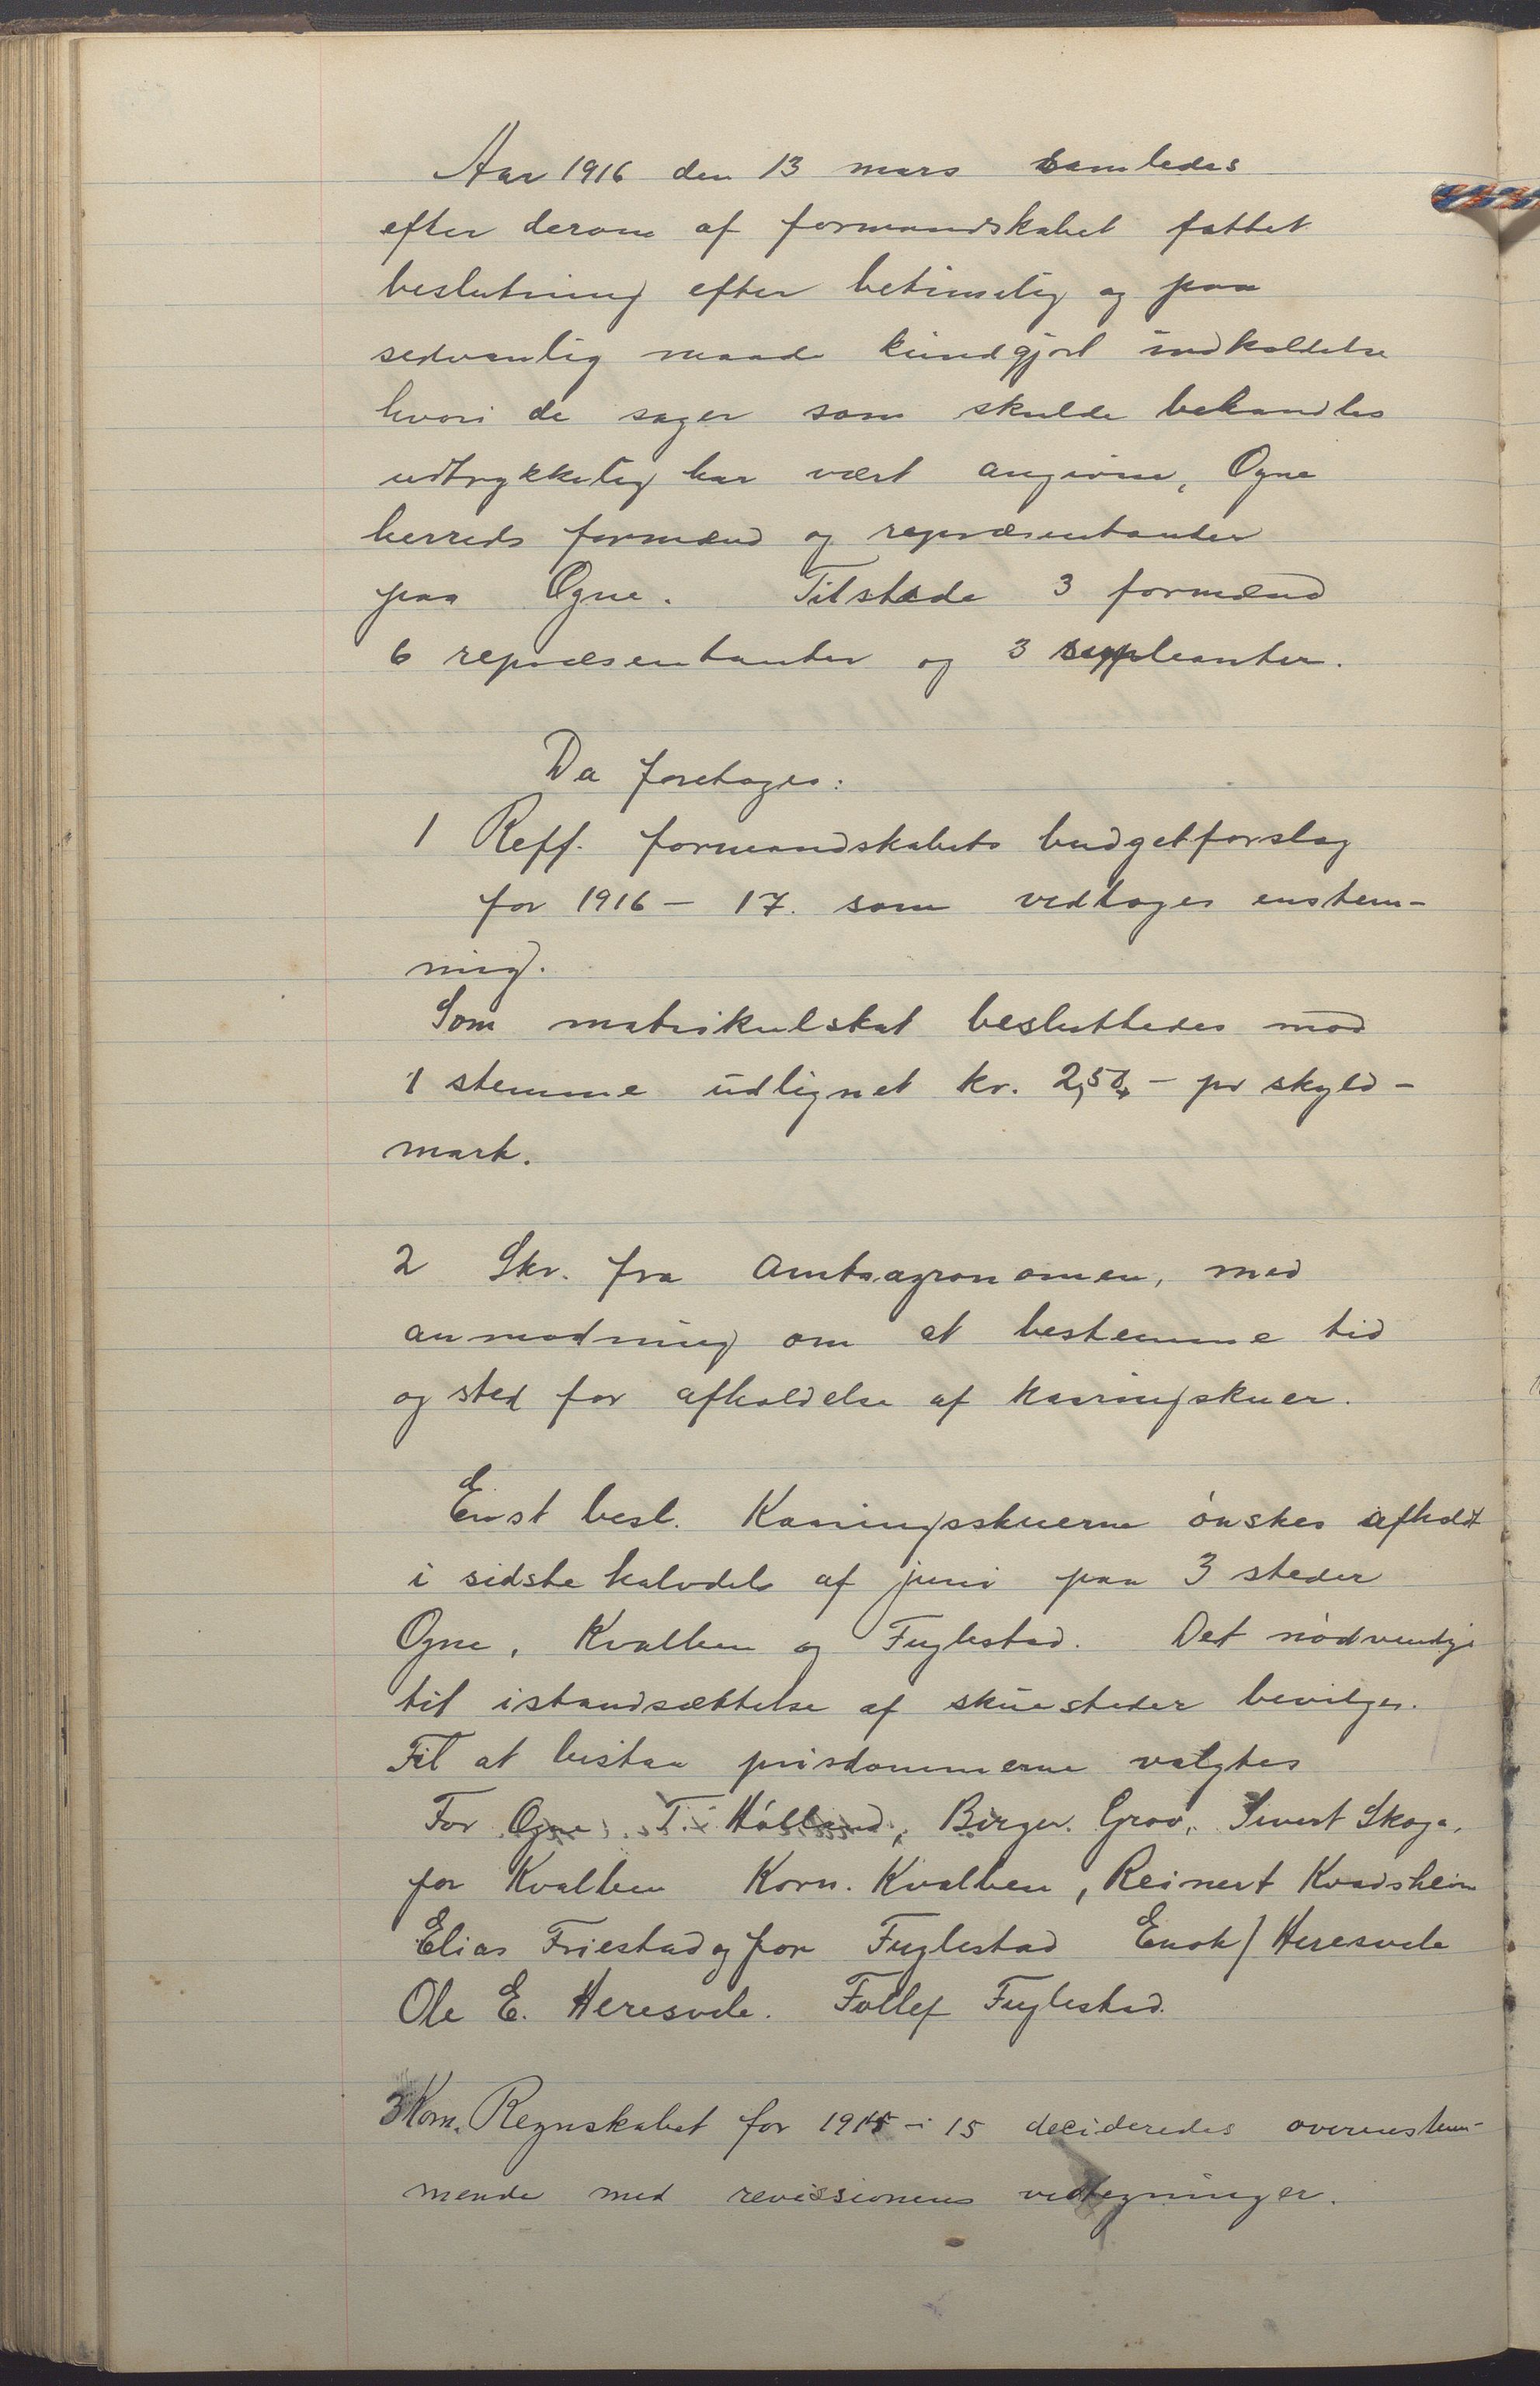 Aar 1916 den 13 mars samledes
efter derom af formandskabet fattet
beslutning efter betimelig og paa
sedvanlig maade kundgjort indkaldelse
hvori de sager som skulde behandles
udtrykkelig har vært angivne, Ogne
herreds formænd og repræsentanter
paa Ogne. Tilstede 3 formænd
6 repræsentanter og 3 suppleanter.
Da foretages:
1 Reff. formandskabets budgetforslag
for 1916 – 17. som vedtages enstem-
mig.
Som matrikulskat besluttedes mod
1 stemme udlignet kr. 2,50 – pr skyld-
mark.
2 Skr. fra Amtsagronomen, med
anmodning om at bestemme tid
og sted for afholdelse af kaaringskuer.
Enst besl. Kaaringsskuerne ønskes afholdt
i sidste halvdel af juni paa 3 steder
Ogne, Kvalben og Fuglestad. Det nødvendige
til istandsættelse af skuesteder bevilges.
Til at bistaa prisdommerne valgtes
For Ogne T. Hålland, Birger Grov, Sivert Skoga,
for Kvalben Korn. Kvalben, Reinert Kvadsheim
Elias Friestad og for Fuglestad Enok Heresvele
Ole E. Heresvele. Follef Fuglestad.
3 Kom. Regnskabet for 1914 – 15 decideredes overenstem-
mende med revissionens vedtegninger.